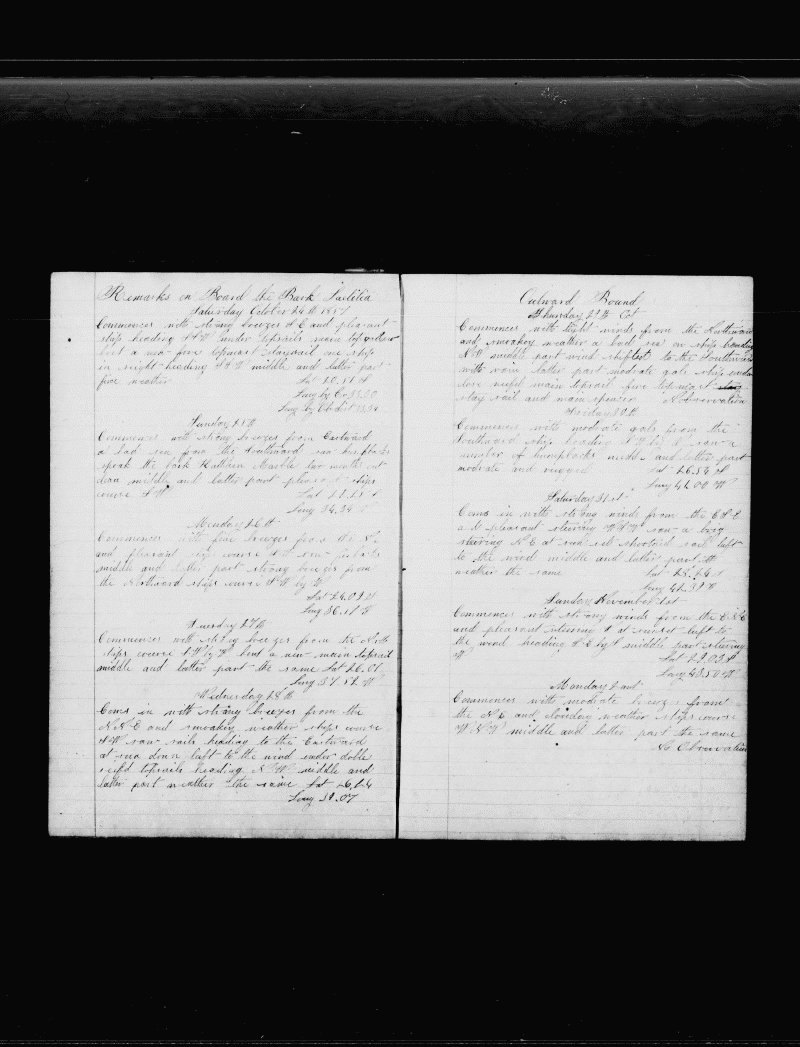 Remarks on Board the Bark Laetitia
Saturday October 24th 18
Commences with strong breezes S E and pleasant
ship heading S W under topsails main topgalns
bent a new fore topmast staysail one ship
in sight heading S W middle and latter part
fine weather Lat
Long by
Long by Ob
Sunday 25th
Commences with strong breezes from Eastward
a bad sea from the Southward saw
speak the bark Kathleen months out
clean middle and latter part pleasant ships
course S W Lat
Long 34.34
Monday 26th
Commences with fine breezes from the N E
and pleasant ships course S W saw
middle and latter part strong breezes from
the Northward ships course S W by W
Lat 24.02 S
Long 36.
Tuesday 27th
Commences with strong breezes from the North
ships course S W by W bent a new main topsail
middle and latter part the same Lat 26.01
Long 37.52 W
Wednesday 28th
Coms in with strong breezes from the
N N E and smoakey weather ships course
S W saw sails heading to the Eastward
at sun down luff to the wind under doble
reefd topsails heading N W middle and
latter part weather the same Lat
Long 39.07
Outward Bound
Thursday 29th Oct
Commences with light winds from the Northward
and smokey weather a bad sea on ship heading
N W middle part wind shifted to the Southward
with rain latter part moderate gale ship under
close reefd main topsail fore topmast
stay sail and main spencer No Observation
Friday 30th
Commences with moderate gale from the
Southward ship heading saw a
number of humpbacks middle and latter part
moderate and rugged Lat 26.54 S
Long 41.00 W
Saturday 31st
Coms in with strong winds from the E S E
and pleasant steering W S W saw a brig
steering N E at sun set shortend sail luft
to the wind middle and latter part
weather the same Lat
Long 42.37 W
Sunday November 1st
Commences with strong winds from the E N E
and pleasant steering at sunset luft to
the wind heading middle part steering
W Lat 29.03 S
Long 43.50 W
Monday 2 and
Commences with moderate breezes from
the N E and clouday weather ships course
W S W middle and latter part the same
No Observation